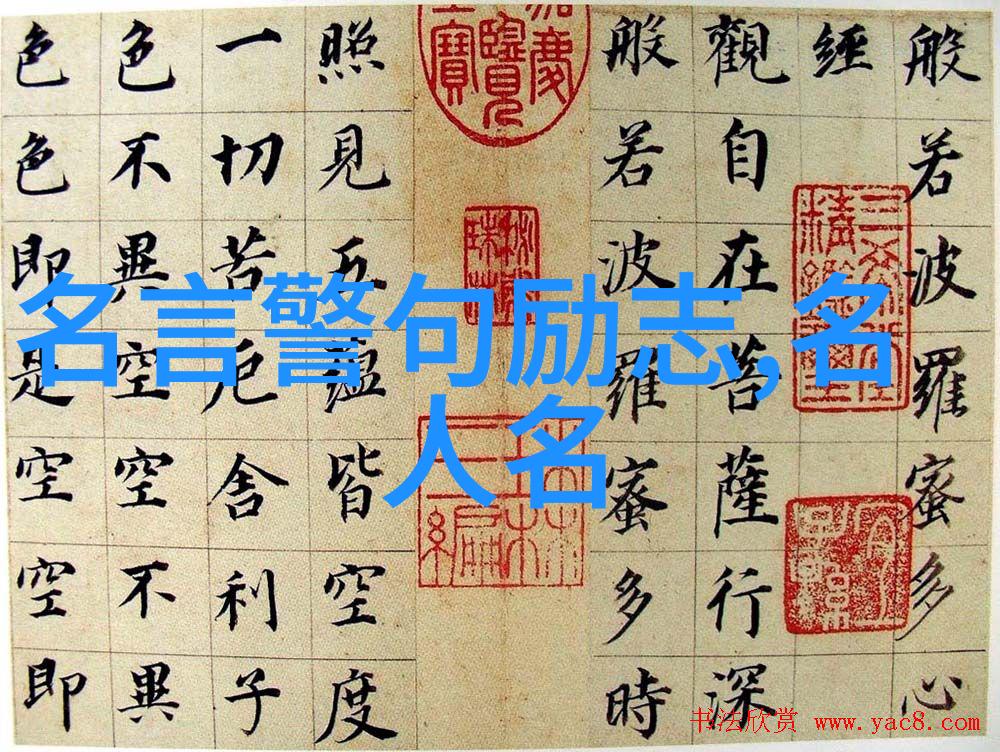 般若波羅蜜多心
經
觀自在菩薩行深
般若波羅蜜多時
照見五蘊皆空度
一切苦厄舍利子
色不異空空不異
色色即是空空即
三希堂精鑑璽
秘殿珠林
名言警句励志,名
人名
书法欣赏 www.yac8.com